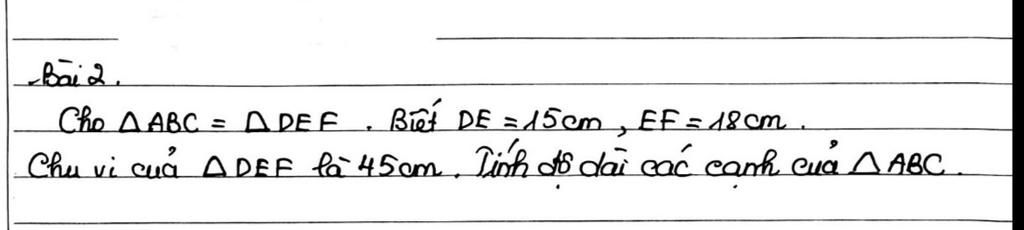 Bài 2.
Cho △ABC = △DEF. Biết DE = 15cm, EF = 18cm.
Chu vi của △DEF là 45cm. Tính độ dài các cạnh của △ABC.